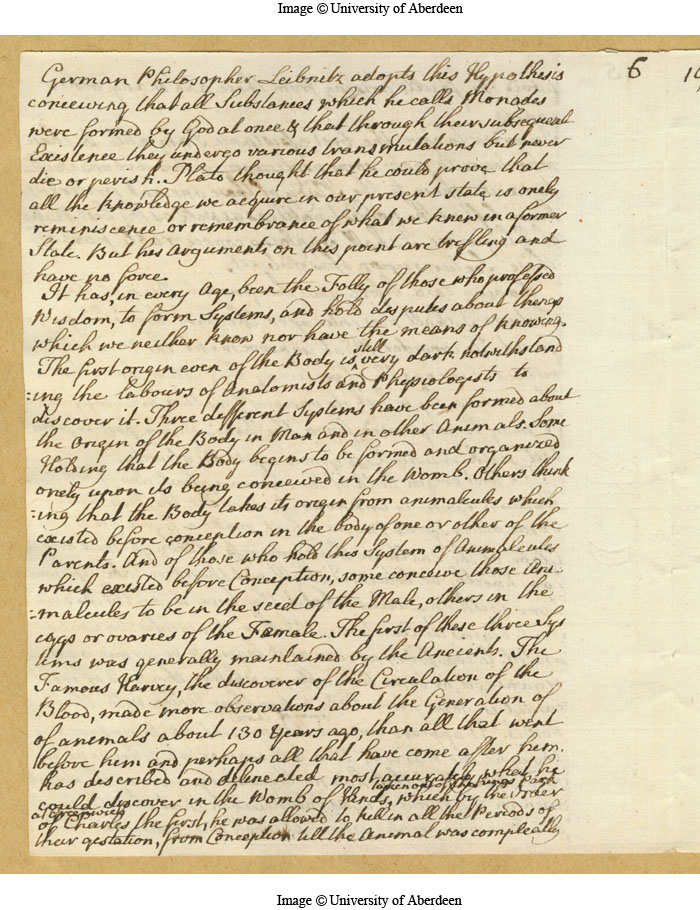 Image © University of Aberdeen
6
German Philosopher Leibnitz adopts this Hypothesis
conceiving that all Substances which he calls Monades
were formed by God at once & that through their subsequent
Existence they undergo various transmutations but never
die or perish. Plato thought that he could prove that
all the knowledge we acquire in our present state is onely
reminiscence or remembrance of what we knew in a former
State. But his Arguments on this point are trifling and
have no force.
It has, in every Age, been the Folly of those who professed
Wisdom, to form Systems, and hold disputes about things
which we neither know nor have the means of knowing.
The first origin even of the Body is still very dark notwithstand
:ing the labours of Anatomists and Physiologists to
discover it. Three different Systems have been formed about
the Origin of the Body in Man and in other Animals. Some
Holding that the Body begins to be formed and organized
onely upon its being conceived in the Womb. Others think
:ing that the Body takes its origin from animalcules which
existed before conception in the body of one or other of the
Parents. And of those who hold this System of Animalcules
which existed before Conception, some conceive those Ani
:malcules to be in the seed of the Male, others in the
eggs or ovaries of the Female. The first of these three Sys
tims was generally maintained by the Ancients. The
Famous Harvey, the discoverer of the Circulation of the
Blood, made more observations about the Generation of
of animals about 130 Years ago, than all that went
before him and perhaps all that have come after him.
has described and delineated most accurately what he
could discover in the Womb of Hinds, taken out of the Kings Park
at Greenwich which by the Order
of Charles the first, he was allowed to kill in all the Periods of
their gestation, from Conception till the Animal was compleatly
Image © University of Aberdeen